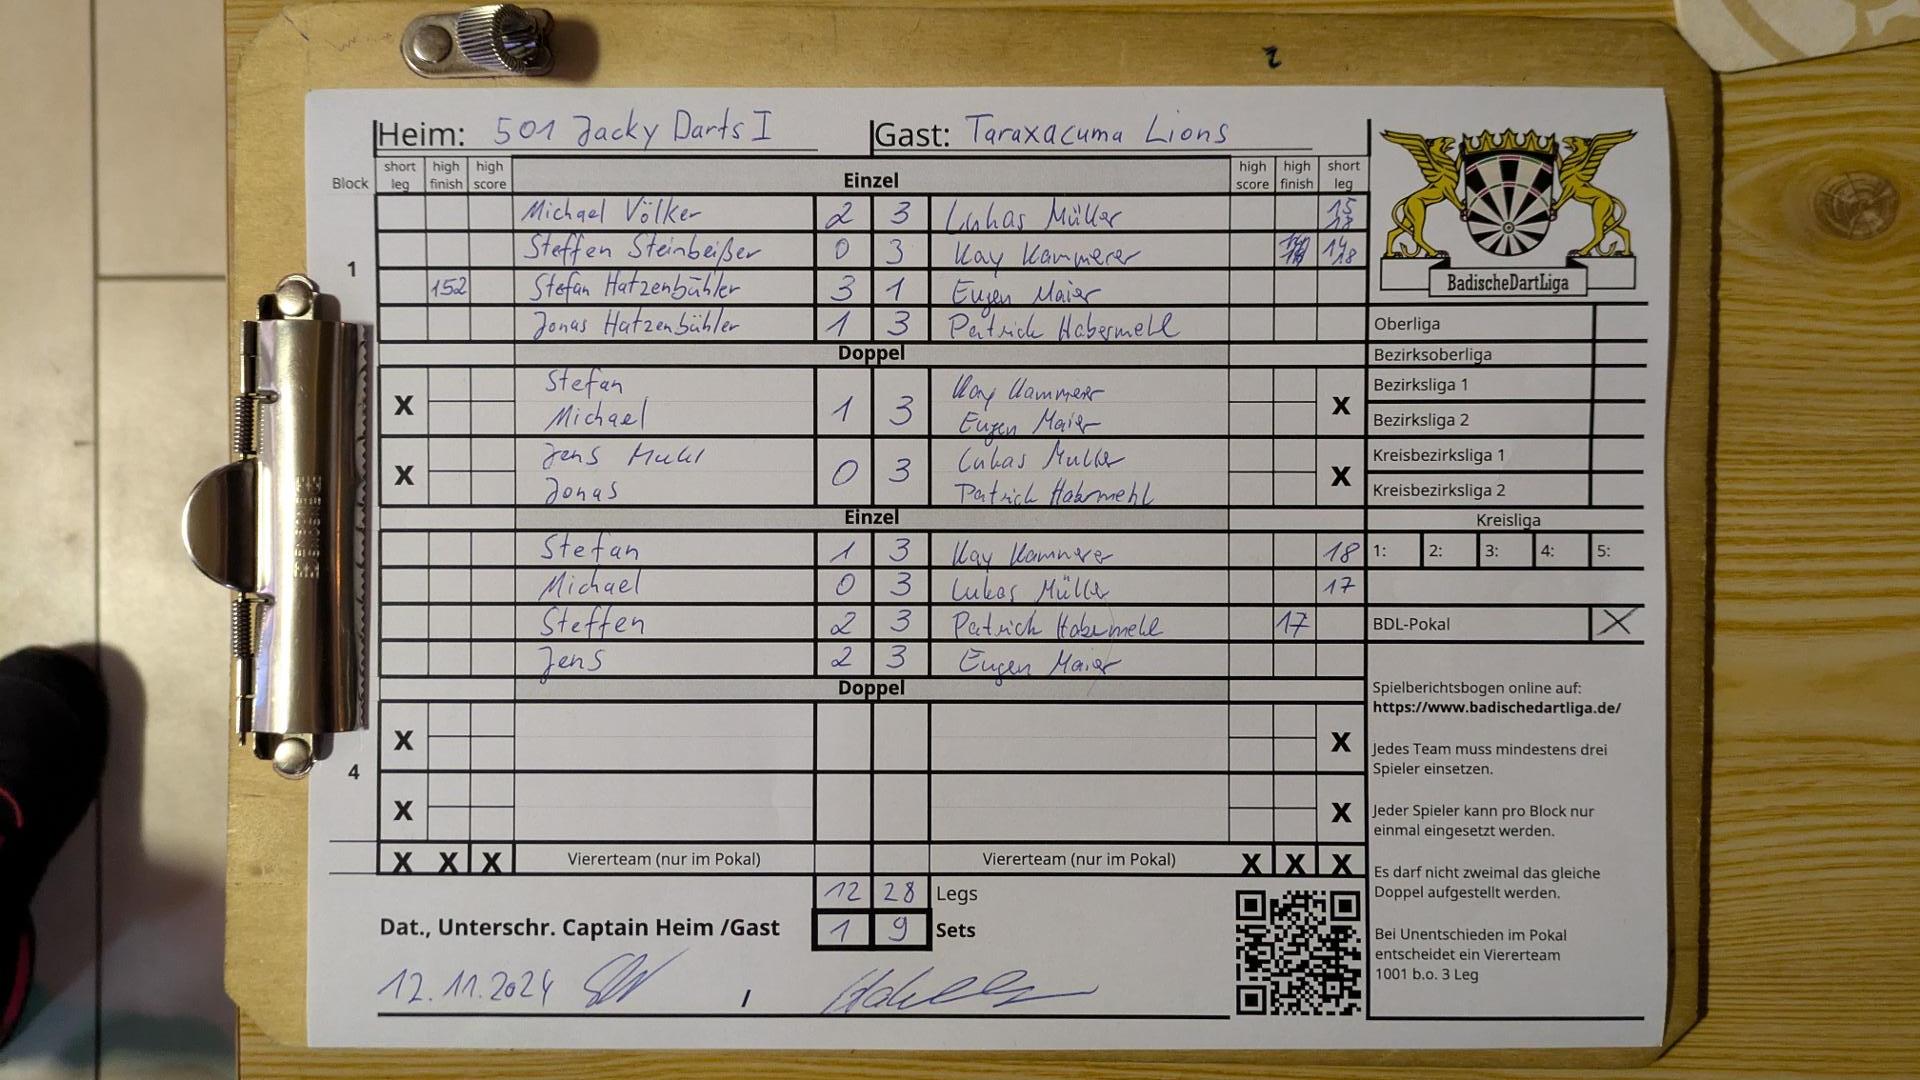 Heim: 501 Jacky Darts I Gast: Taraxacuma Lions
Block short leg high finish high score Einzel high score high finish short leg
Michael Völker 2 3 Lukas Müller 15 18
1 Steffen Steinbeißer 0 3 Kay Kammerer 14 18
152 Stefan Hatzenbühler 3 1 Eugen Maier
Jonas Hatzenbühler 1 3 Patrick Habermehl
Doppel
X Stefan Michael 1 3 Kay Kammerer Eugen Maier X
X Jens Jonas 0 3 Lukas Muller Patrick Habermehl X
Einzel
Stefan 1 3 Kay Kammerer 18
Michael 0 3 Lukas Müller 17
Steffen 2 3 Patrick Habermehl 17
Jens 2 3 Eugen Maier
Doppel
X X
4
X X
X X X Viererteam (nur im Pokal) Viererteam (nur im Pokal) X X X
12 28 Legs
Dat., Unterschr. Captain Heim /Gast 1 9 Sets
12.11.2024 /
BadischeDartLiga
Oberliga
Bezirksoberliga
Bezirksliga 1
Bezirksliga 2
Kreisbezirksliga 1
Kreisbezirksliga 2
Kreisliga
1: 2: 3: 4: 5:
BDL-Pokal X
Spielberichtsbogen online auf:
https://www.badischedartliga.de/
Jedes Team muss mindestens drei
Spieler einsetzen.
Jeder Spieler kann pro Block nur
einmal eingesetzt werden.
Es darf nicht zweimal das gleiche
Doppel aufgestellt werden.
Bei Unentschieden im Pokal
entscheidet ein Viererteam
1001 b.o. 3 Leg